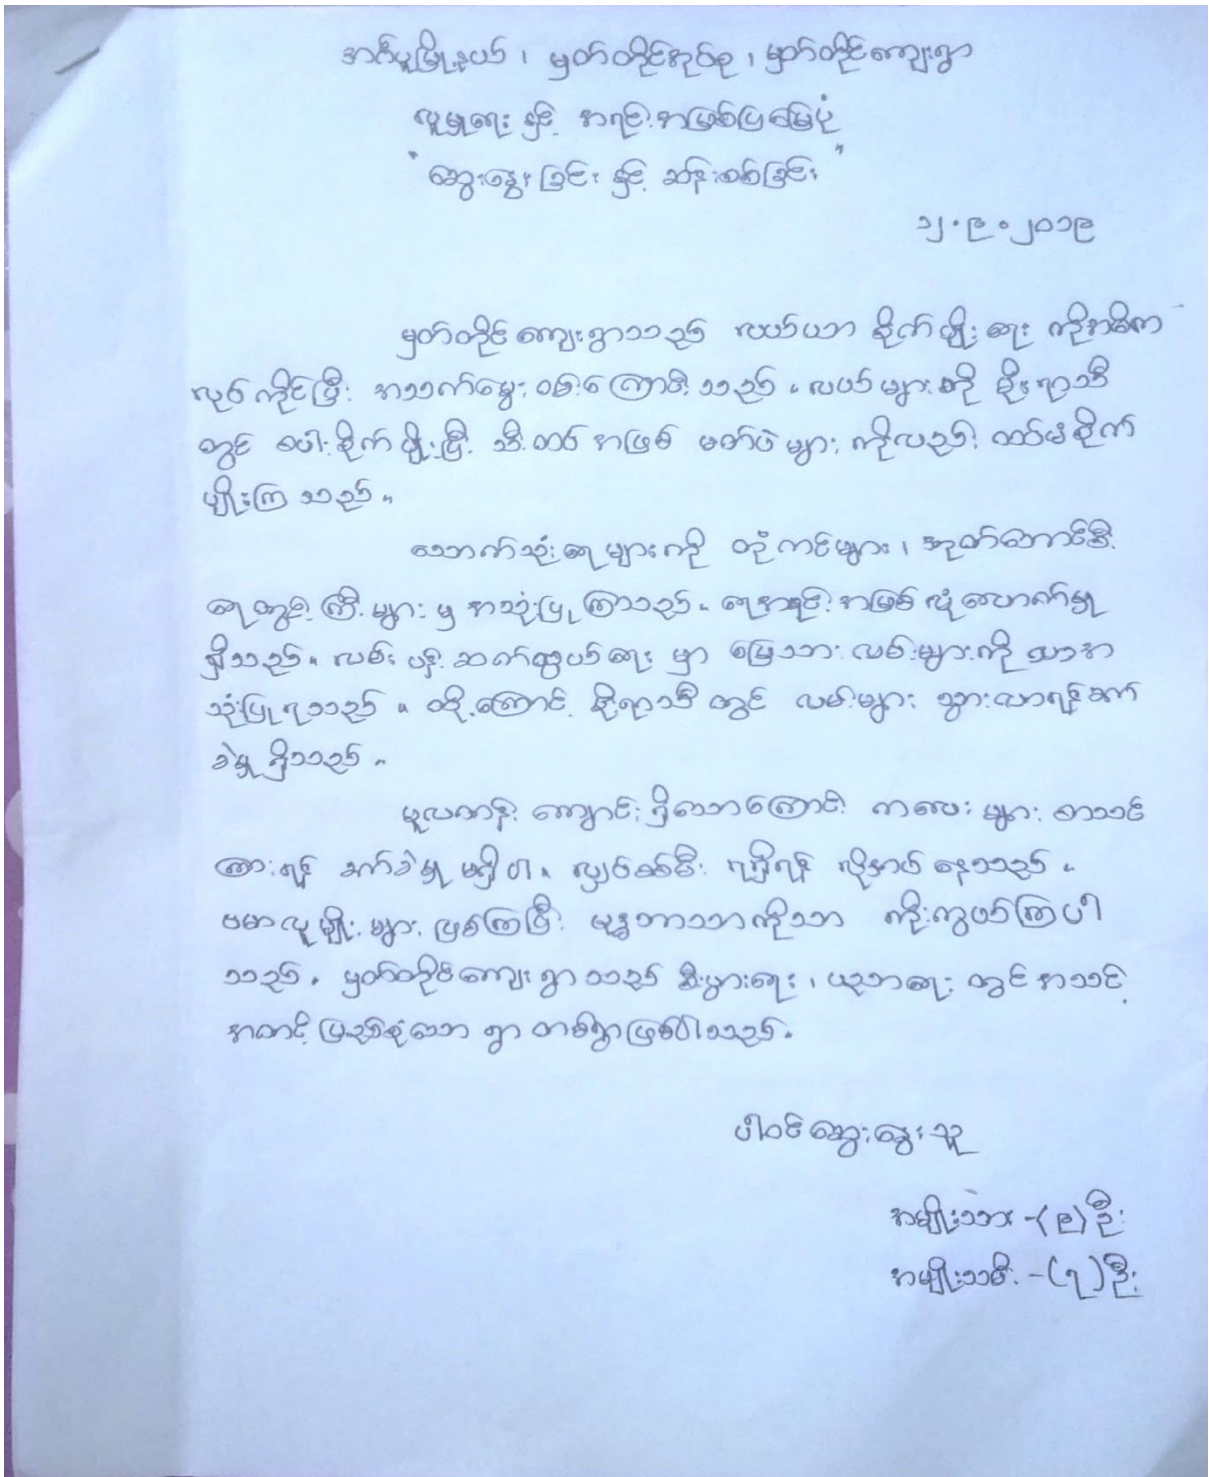 အင်္ဂပူမြို့နယ် ၊ မှတ်တိုင်အုပ်စု ၊ မှတ်တိုင်ကျေးရွာ
လူမှုရေး နှင့် အရင်းအမြစ်ပြမြေပုံ
" ဆွေးနွေးခြင်း နှင့် ဆန်းစစ်ခြင်း "
၁၂.၉.၂၀၁၉
မှတ်တိုင်ကျေးရွာသည် လယ်ယာ စိုက်ပျိုးရေး ကိုအဓိက
လုပ်ကိုင်ပြီး အသက်မွေးဝမ်းကြောင်းသည်။ လယ်များကို မိုးရာသီ
တွင် စပါးစိုက်ပျိုးပြီး သီးထပ်အဖြစ် မတ်ပဲများကိုလည်း ထပ်မံစိုက်
ပျိုးကြသည်။
သောက်သုံးရေများကို တုံကင်များ ၊ အုတ်ဘောင်စီး
ရေတွင်းကြီးများ မှ အသုံးပြုကြသည်။ ရေအရင်းအမြစ်လုံလောက်မှု
ရှိသည်။ လမ်းပန်းဆက်သွယ်ရေး မှာ မြေသားလမ်းများကိုသာအ
သုံးပြုရသည်။ ထို့ကြောင့် မိုးရာသီတွင် လမ်းများ သွားလာရန်ခက်
ခဲမှု ရှိသည်။
မူလတန်းကျောင်းရှိသောကြောင့် ကလေးများ စာသင်
ကြားရန် ခက်ခဲမှု မရှိပါ။ လျှပ်စစ်မီး ရရှိရန် လိုအပ်နေသည်။
ဗမာလူမျိုးများ ဖြစ်ကြပြီး ဗုဒ္ဓဘာသာကိုသာ ကိုးကွယ်ကြပါ
သည်။ မှတ်တိုင်ကျေးရွာသည် စီးပွားရေး ၊ ပညာရေး တွင် အသင့်
အတင့် ပြည့်စုံသော ရွာ တစ်ရွာဖြစ်ပါသည်။
ပါဝင်ဆွေးနွေးသူ
အမျိုးသား -(၉)ဦး
အမျိုးသမီး -(၇)ဦး